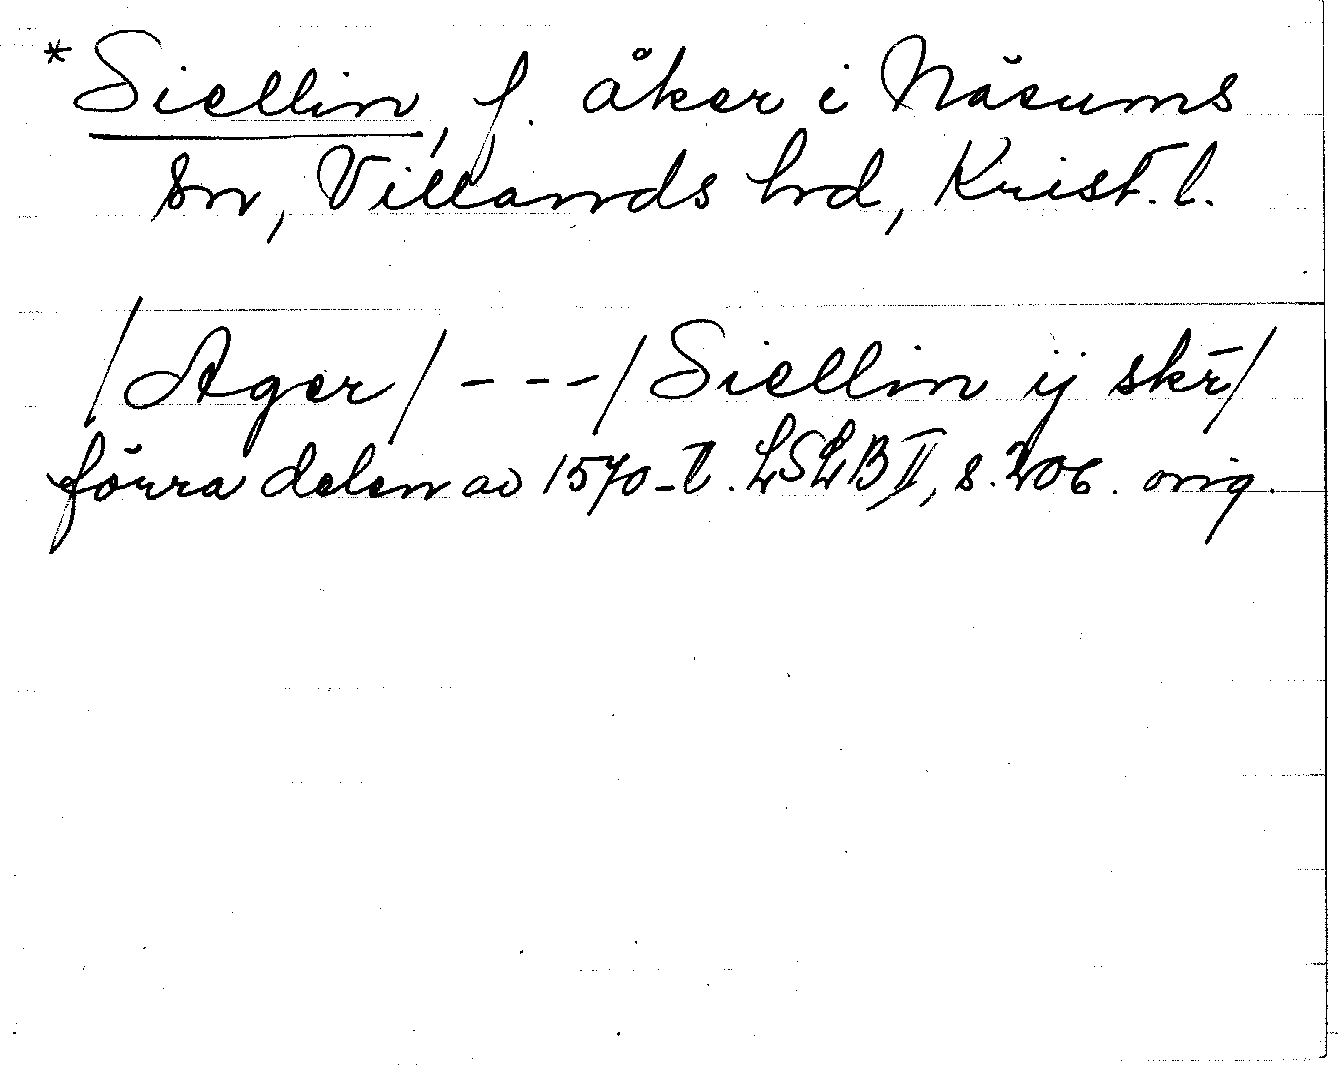 * Siellin, f. åker i Näsums
sn, Villands hd, Krist. l.
/Ager/ - - -/ Siellin ij skr̄/
förra delen av 1570-t. LSLB II, s. 206. orig.